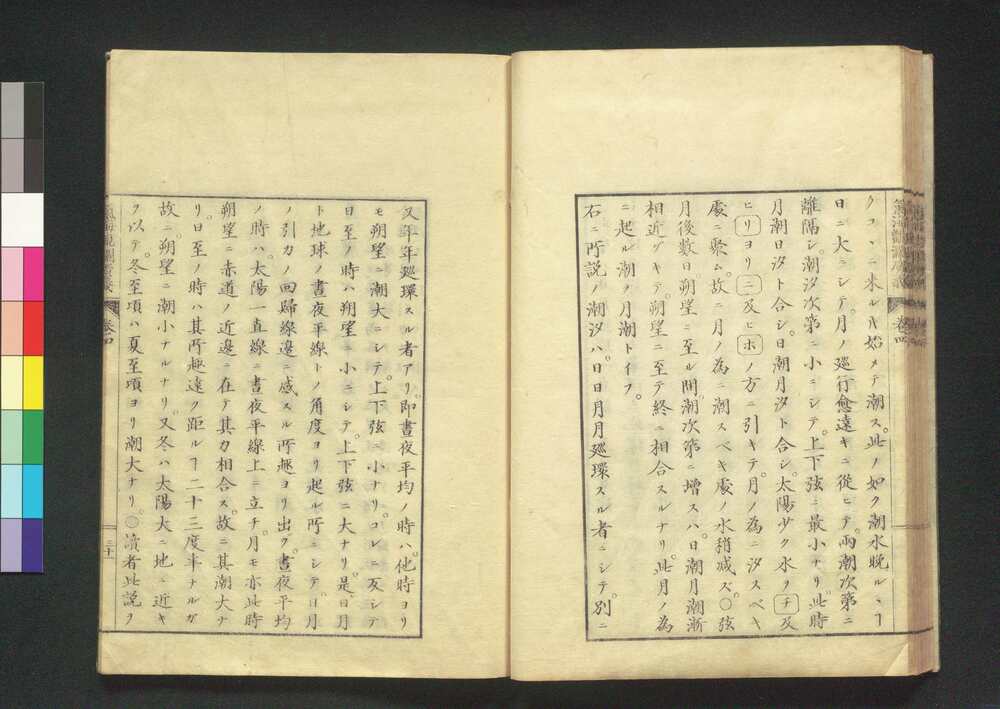 クコヽニ来ル𪜈始メテ潮ス。此ノ如ク潮水晩ルヽヿ
日ニ大ニシテ。月ノ巡行愈遠キニ従ヒテ。両潮次第ニ
離隔シ潮汐次第ニ小ニシテ。上下弦ニ最小ナリ。此時
月潮日汐ト合シ。日潮月汐ト合シ。太陽少ク水ヲチ及
ヒリヨリニ及ヒホノ方ニ引キテ。月ノ為ニ汐スベキ
處ニ聚ム。故ニ月ノ為ニ潮スベキ處ノ水稍減ズ。〇弦
月後數日。朔望ニ至ル間潮次第ニ増スハ。日潮月潮漸
相近ヅキテ。朔望ニ至テ終ニ相合スルナリ。此月ノ為
ニ起ル潮ヲ月潮トイフ。
右ニ所説ノ潮汐ハ。日日月月廻環スル者ニシテ。別ニ
氣海觀瀾廣義 卷四
又年年廻環スル者アリ。即晝夜平均ノ時ハ。他時ヨリ
モ朔望ニ潮大ニシテ。上下弦ニ小ナリ。コレニ反シテ
日至ノ時ハ朔望ニ小ニシテ。上下弦ニ大ナリ。是日月
ト地球ノ晝夜平線トノ角度ヨリ起ル所ニシテ。日月
ノ引力ノ回歸線邊ニ感スル所趣ヨリ出ヅ。晝夜平均
ノ時ハ。太陽一直線ニ晝夜平線上ニ立チ。月モ亦此時
朔望ニ赤道ノ近邊ニ在テ其力相合ス。故ニ其潮大ナ
リ。日至ノ時ハ其所趣遠ク距ルヿ二十三度半ナルガ
故ニ。朔望ニ潮小ナルナリ。又冬ハ太陽大ニ地ニ近キ
ヲ以テ。冬至頃ハ夏至頃ヨリ潮大ナリ。〇讀者此説ヲ
氣海觀瀾廣義 卷四 二十